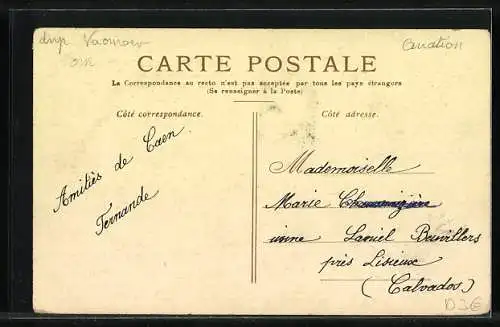 CARTE POSTALE
La Correspondance au recto n'est pas acceptée par tous les pays étrangers
(Se renseigner à la Poste)
Côté correspondance.
Côté adresse.
Amitiés de Caen
Fernande
Mademoiselle
Marie
usine Laniel Beuvillers
près Lisieux
(Calvados)
D3€